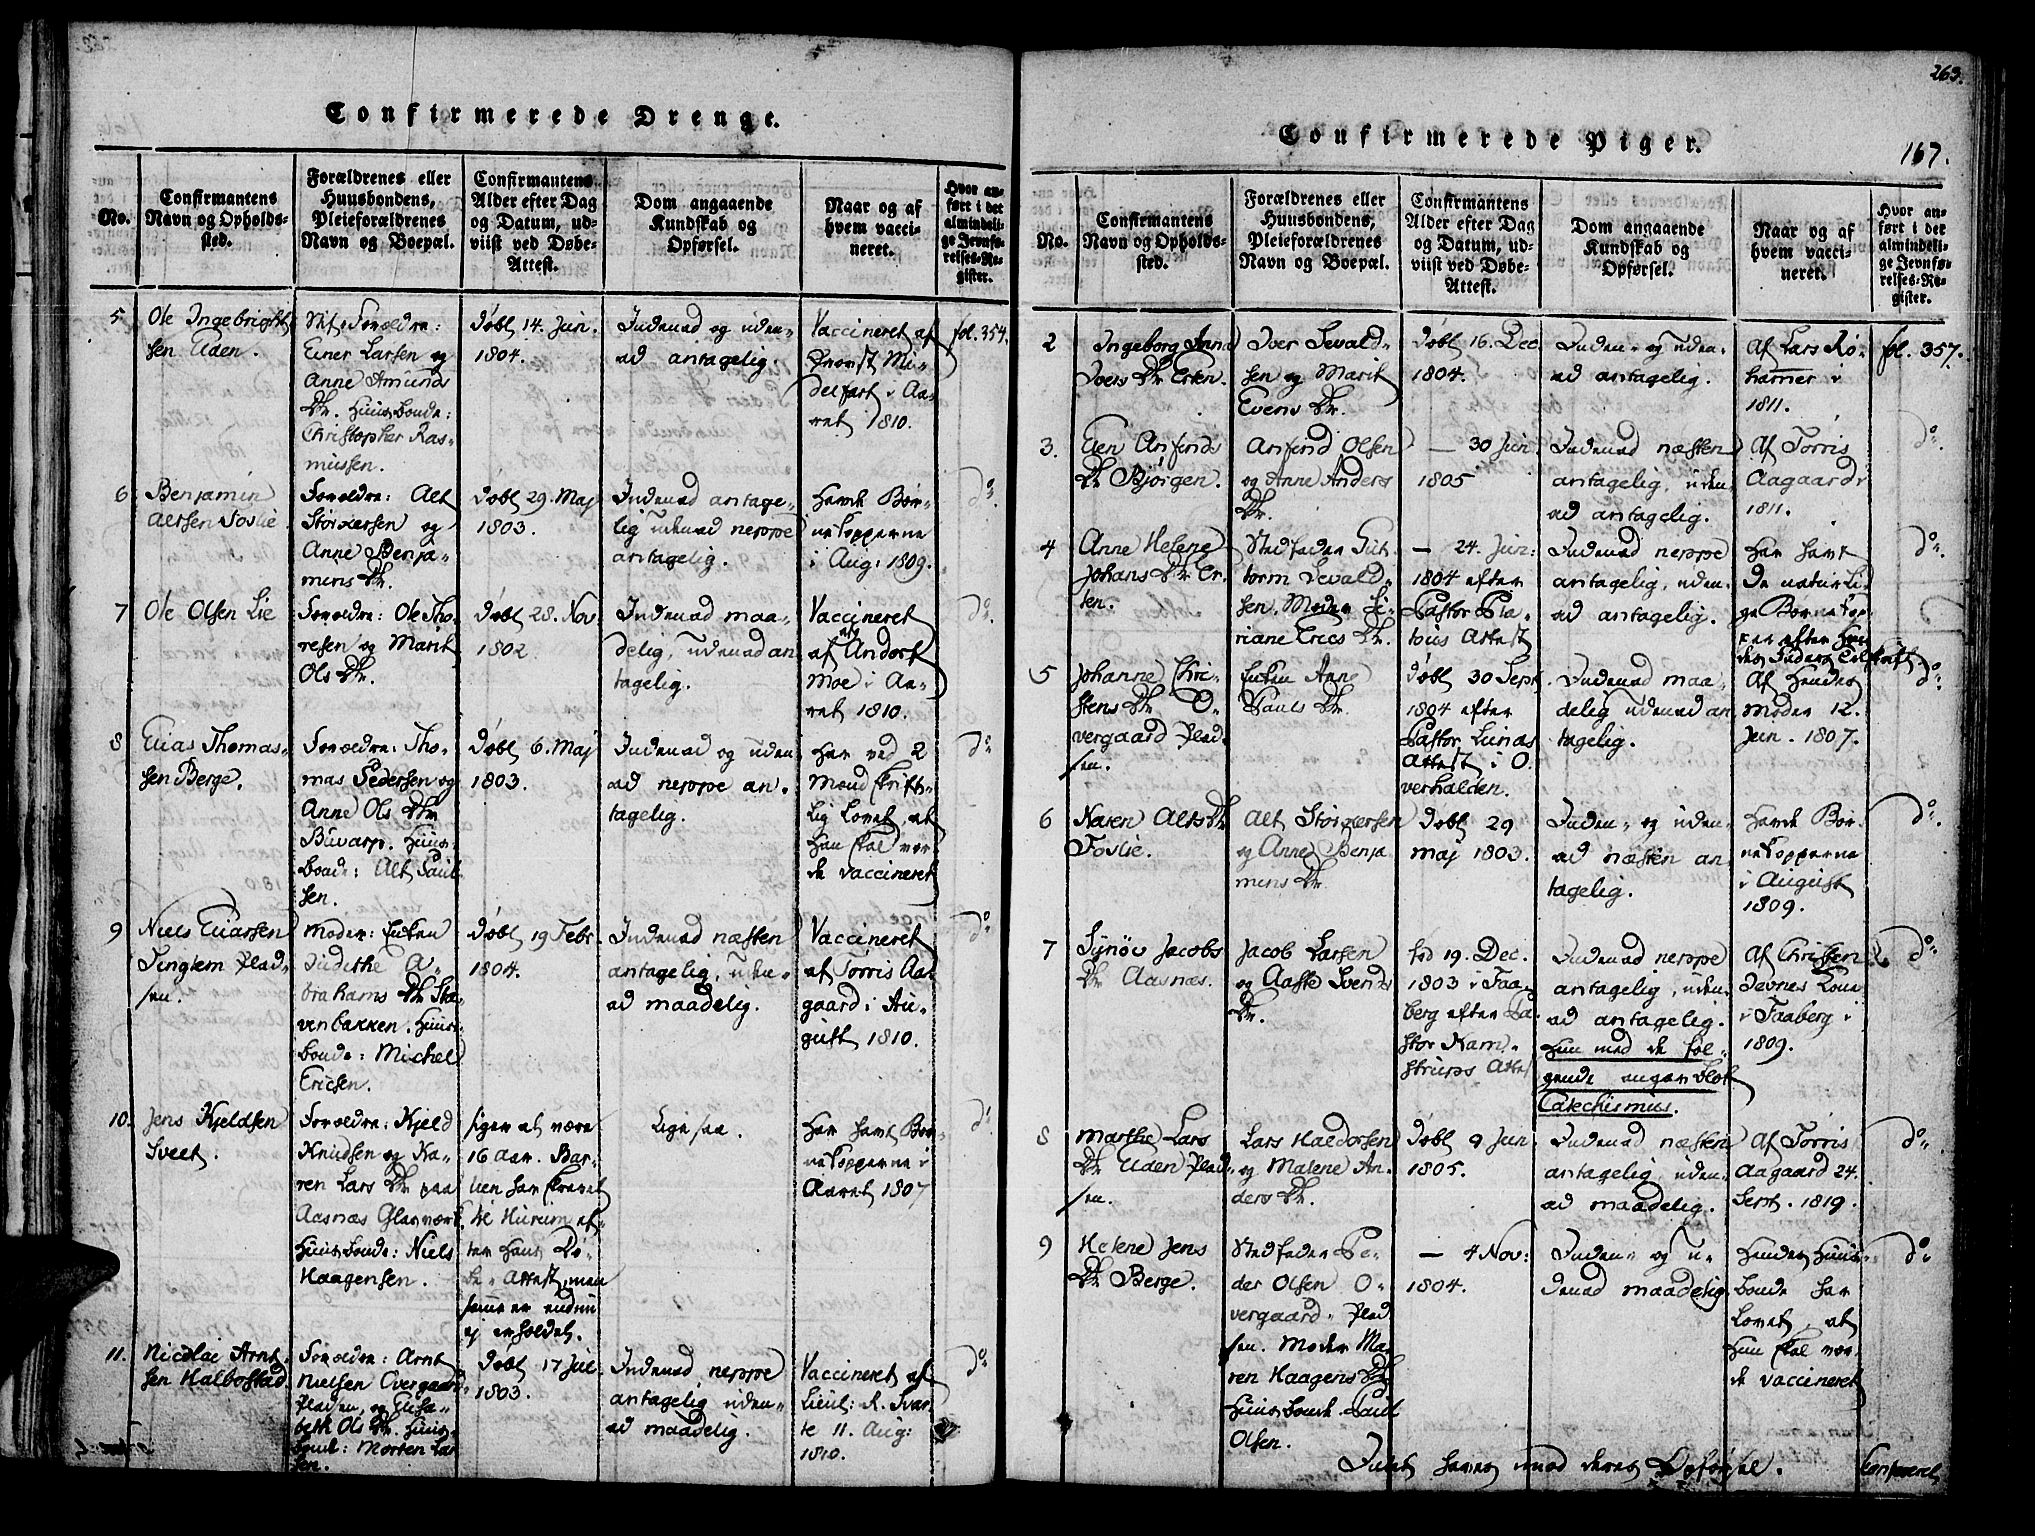 Confirmerede Drenge.
No.
Confirmantens
Navn og Opholds-
sted.
Forældrenes eller
Huusbondens,
Pleieforældrenes
Navn og Boepæl.
Confirmantens
Alder efter Dag
og Datum, ud-
viist ved Døbe-
Attest.
Dom angaaende
Kundskab og
Opførsel.
Naar og af
hvem vacci-
neret.
Hvor an-
ført i det
almindeli-
ge Jevnfø-
relses-Re-
gister.
5
Ole Ingebrigt
sen Eiden.
Forældre:
Einer Larsen og
Anne Amunds
Dtr. Huusbonde:
Christopher Ras-
mussen.
Døbt 14. Jun.
1804.
Indenad og uden-
ad antagelig.
Vaccineret af
Provst Mi-
delfart i Aa-
ret 1810.
fol. 354.
6
Benjamin
Altsen Foslie.
Forældre: Alt
Storkersen og
Anne Benja-
mins Dtr.
Døbt 29. Maj
1803.
Indenad antage-
lig udenad neppe
antagelig.
Havde Bør-
nekopperne
i Aug: 1809.
do.
7
Ole Olsen Lie
Forældre: Ole Tho-
resen og Marit
Ols Dtr.
Døbt 28. Nov
1802.
Indenad maa-
delig, udenad an
tagelig.
Vaccineret
af Andors
Moe i Aa-
ret 1810.
do.
8
Elias Thomas-
sen Berge.
Forældre: Tho-
mas Pedersen og
Anne Ols Dtr
Buvarp. Huus-
bonde: Alt Paul-
sen.
Døbt 6. Maj
1803.
Indenad og uden
ad neppe an-
tagelig.
Har ved 2
Mænd skrift-
lig lovet at
han skal vor
de vaccineret
do
9
Niels Eliassen
Tinglem Plad-
sen.
Moder: Enken
Judithe A-
brahams Dtr Sta-
venbakken. Huus-
bonde: Michel
Ericsen.
Døbt 19 Febr.
1804.
Indenad næsten
antagelig, uden-
ad maadelig.
Vaccineret
af Torris Aa-
gaard i Au-
gust 1810.
do
10.
Jens Kjeldsen
Sveet.
Forældre: Kjeld
Knudsen og Ka-
ren Lars Dtr paa
Aasnæs Glasværk.
Huusbonde: Niels
Haagensen.
siges at være
16 Aar. Bar-
nen har skrevet
til Hurum ef-
ter hans Dø-
be-Attest, men
samme er endnu
ej erholdet.
Ligesaa.
Har havt Bør-
nekopperne i
Aaret 1807
do
11.
Nicolai Arnt-
sen Halbostad
Forældre: Arnt
Nielsen Overgaard-
Pladsen, og Elisa-
beth Ols Dtr. Huus-
bond: Morten Lar
sen.
Døbt 17 Jul.
1803.
Indenad neppe
antagelig uden-
ad maadelig.
Vaccineret af
Lieut: R. Svar-
te 11. Aug:
1810.
do
263.
Confirmerede Piger.
167.
No.
Confirmantens
Navn og Opholds-
sted.
Forældrenes eller
Huusbondens,
Pleieforældrenes
Navn og Boepæl.
Confirmantens
Alder efter Dag
og Datum, ud-
viist ved Døbe-
Attest.
Dom angaaende
Kundskab og
Opførsel.
Naar og af
hvem vacci-
neret.
Hvor an-
ført i der
almindeli-
ge Jevnfø-
relses-Re-
gister.
2
Ingeborg Anna
Ivers Dtr Erten.
Iver Sevald-
sen og Marit
Evens Dtr.
Døbt 16. Dec
1804.
Inden- og uden-
ad antagelig.
Af Lars Rø-
hamer i
1811.
fol. 357.
3.
Elen Arnfinds
Dtr Bjørgen.
Arnfind Olsen
og Anne Anders
Dtr.
— 30 Jun.
1805
Indenad næsten
antagelig, uden-
ad antagelig.
Af Torris
Aagaard i
1811.
do
4
Anne Helene
Johans Dtr Er-
ten.
Stedfader Gut-
torm Sevald-
sen. Moder Si-
riane Erics Dtr.
— 24. Jun:
1804 efter
Pastor Pla-
tous Attest
Indenad neppe
antagelig, uden-
ad antagelig.
Har havt
de naturli-
ge Børnekop-
per efter Hen
des Faders Tilskrift.
do.
5
Johanne Chri-
stens Dtr O-
vergaard Plad-
sen.
Enken Anne
Pauls Dtr.
Døbt 30 Sept
1804 efter
Pastor Lunds
Attest i O-
verhalden.
Indenad maa-
delig udenad an
tagelig.
Af hendes
Moder 12.
Jun. 1807.
do.
6
Karen Alts Dtr
Foslie.
Alt Storkersen
og Anne Benja
mins Dtr.
Døbt 29
Maj 1803.
Inden- og uden-
ad næsten an-
tagelig.
Havde Bør-
nekopperne
i August
1809.
do.
7
Synøv Jacobs
Dtr Aasnæs.
Jacob Larsen
og Aaste Svends
Dtr.
fød 19. Dec.
1803 i Faa-
berg efter Pa-
stor Kam-
strups Attest
Indenad neppe
antagelig, uden-
ad antagelig.
Hun med de føl-
gende angaar blot
Catechismus.
Af Christen
Jevnes Kone
i Faaberg i
1809.
do
8
Marthe Lars
Dtr Eiden Plad-
sen.
Lars Haldorsen
og Malene An-
ders Dtr.
Døbt 9 Jun
1805.
Indenad næsten
antagelig uden-
ad maadelig.
Af Torris
Aagaard 24.
Sept. 1819.
do
9
Helene Jens
Dtr Berge.
Stedfader Pe-
der Olsen O-
vergaard-Plad
sen. Moder Ma-
ren Haagens Dtr
Huusbonde Paul
Olsen.
— 4 Nov:
1804.
Inden- og u-
denad maadelig
Hendes Huus-
bonde har
lovet, at
hun skal vor
de vaccineret
do
Intet haves imod deres Opførsel.
Confereret